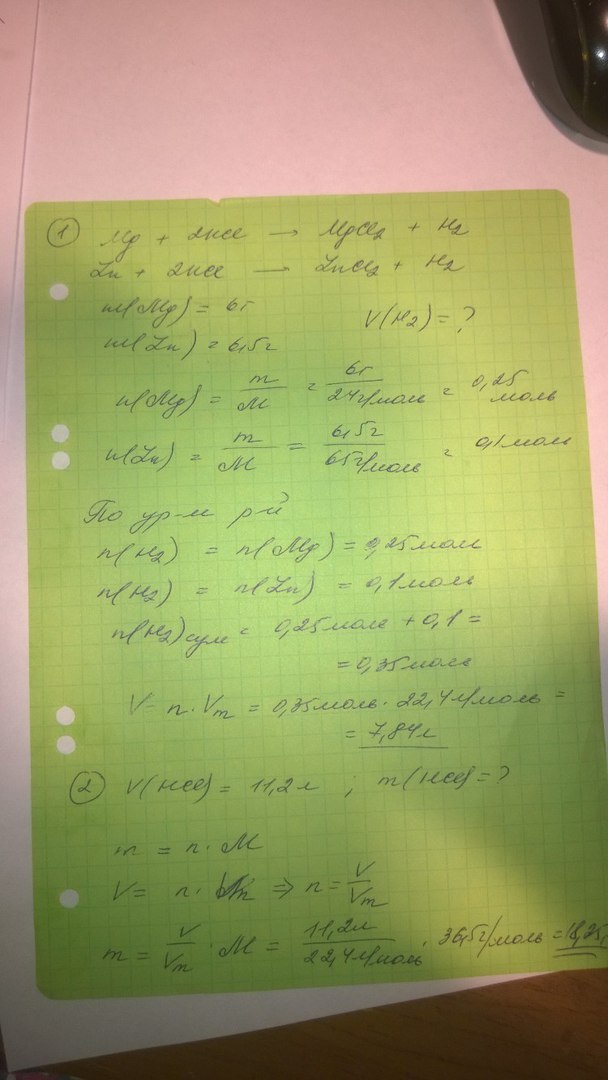 1
Mg + 2HCl → MgCl2 + H2
Zn + 2HCl → ZnCl2 + H2
m(Mg) = 6г
V(H2) = ?
m(Zn) = 6,5г
n(Mg) = m/M = 6г/24г/моль = 0,25 моль
n(Zn) = m/M = 6,5г/65г/моль = 0,1 моль
По ур-м р-й
n(H2) = n(Mg) = 0,25 моль
n(H2) = n(Zn) = 0,1 моль
n(H2)сум = 0,25 моль + 0,1 =
= 0,35 моль
V = n · Vm = 0,35 моль · 22,4 л/моль =
= 7,84л
2 V(HCl) = 11,2л ; m(HCl) = ?
m = n · M
V = n · Vm ⇒ n = V/Vm
m = V/Vm · M = 11,2л/22,4л/моль · 36,5г/моль = 18,25